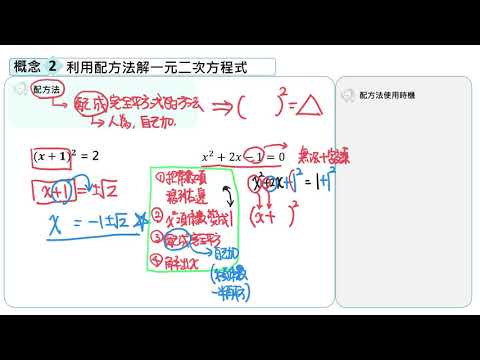 概念 2 利用配方法解一元二次方程式
配方法
配方法使用時機
配成完全平方式的方法 ⇒ ( )² = △
→ 人為, 自己加.
(x + 1)² = 2
x² + 2x − 1 = 0
無法十字交乘
x+1 = ±√2
x = −1±√2
①把常數項
移到右邊
② x²項係數變成1
③ 配成完全平方
→ 自己加
(x項係數
一半再平方)
④ 解出x
x²+2x+1² = 1+1²
(x+ )²